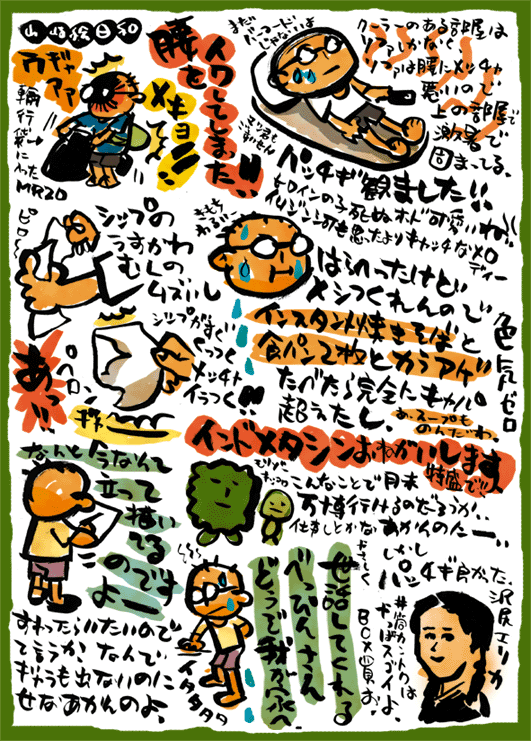 山崎絵日和
腰を
イワしてしまった!!
ウギャアァ
メキョ
輪行袋に
MR20
まだ
バーコード
じゃないよ
クーラーのある部屋は
ソファしかなく、
ソファは腰にメッチャ
悪いので
上の部屋で
激暑で
固まってる。
パッチギ観ました!!
ヒロインの子死ぬホド可愛いね。
イムジン河も思たよりキャッチなメロ
ディー
シップの
うすかわ
むくの、
ムズいし
ピロ〜
シップがすぐ
くっつく
メッチャ
イラつく!!
ペロン
あっ
ギャー
はらへったけど
メシつくれんので
インスタント焼きそばと
食パン2枚とカラアゲ
たべたら完全にもカバ
超えたし、
あ、スープも
のんだわ。
色気ゼロ
インドメタシンおねがいします。
特盛で!!
なんと今なんて
立って
描い
てる
のです
よー
こんなことで月末
万博行けるのだろうか、
仕事しとかなあかんのにー!!
しかし
パッチギ良かった。
沢尻エリカ
井筒カントクは
やっぱスゴイよ、
BOX買お!
やさしく
世話してくれる
べっぴんさん
どうぞ我が家へ
イタタタタ
すわったらいたいので
て言うか、なんで
ギャラも出ないのに
せなあかんのよ、